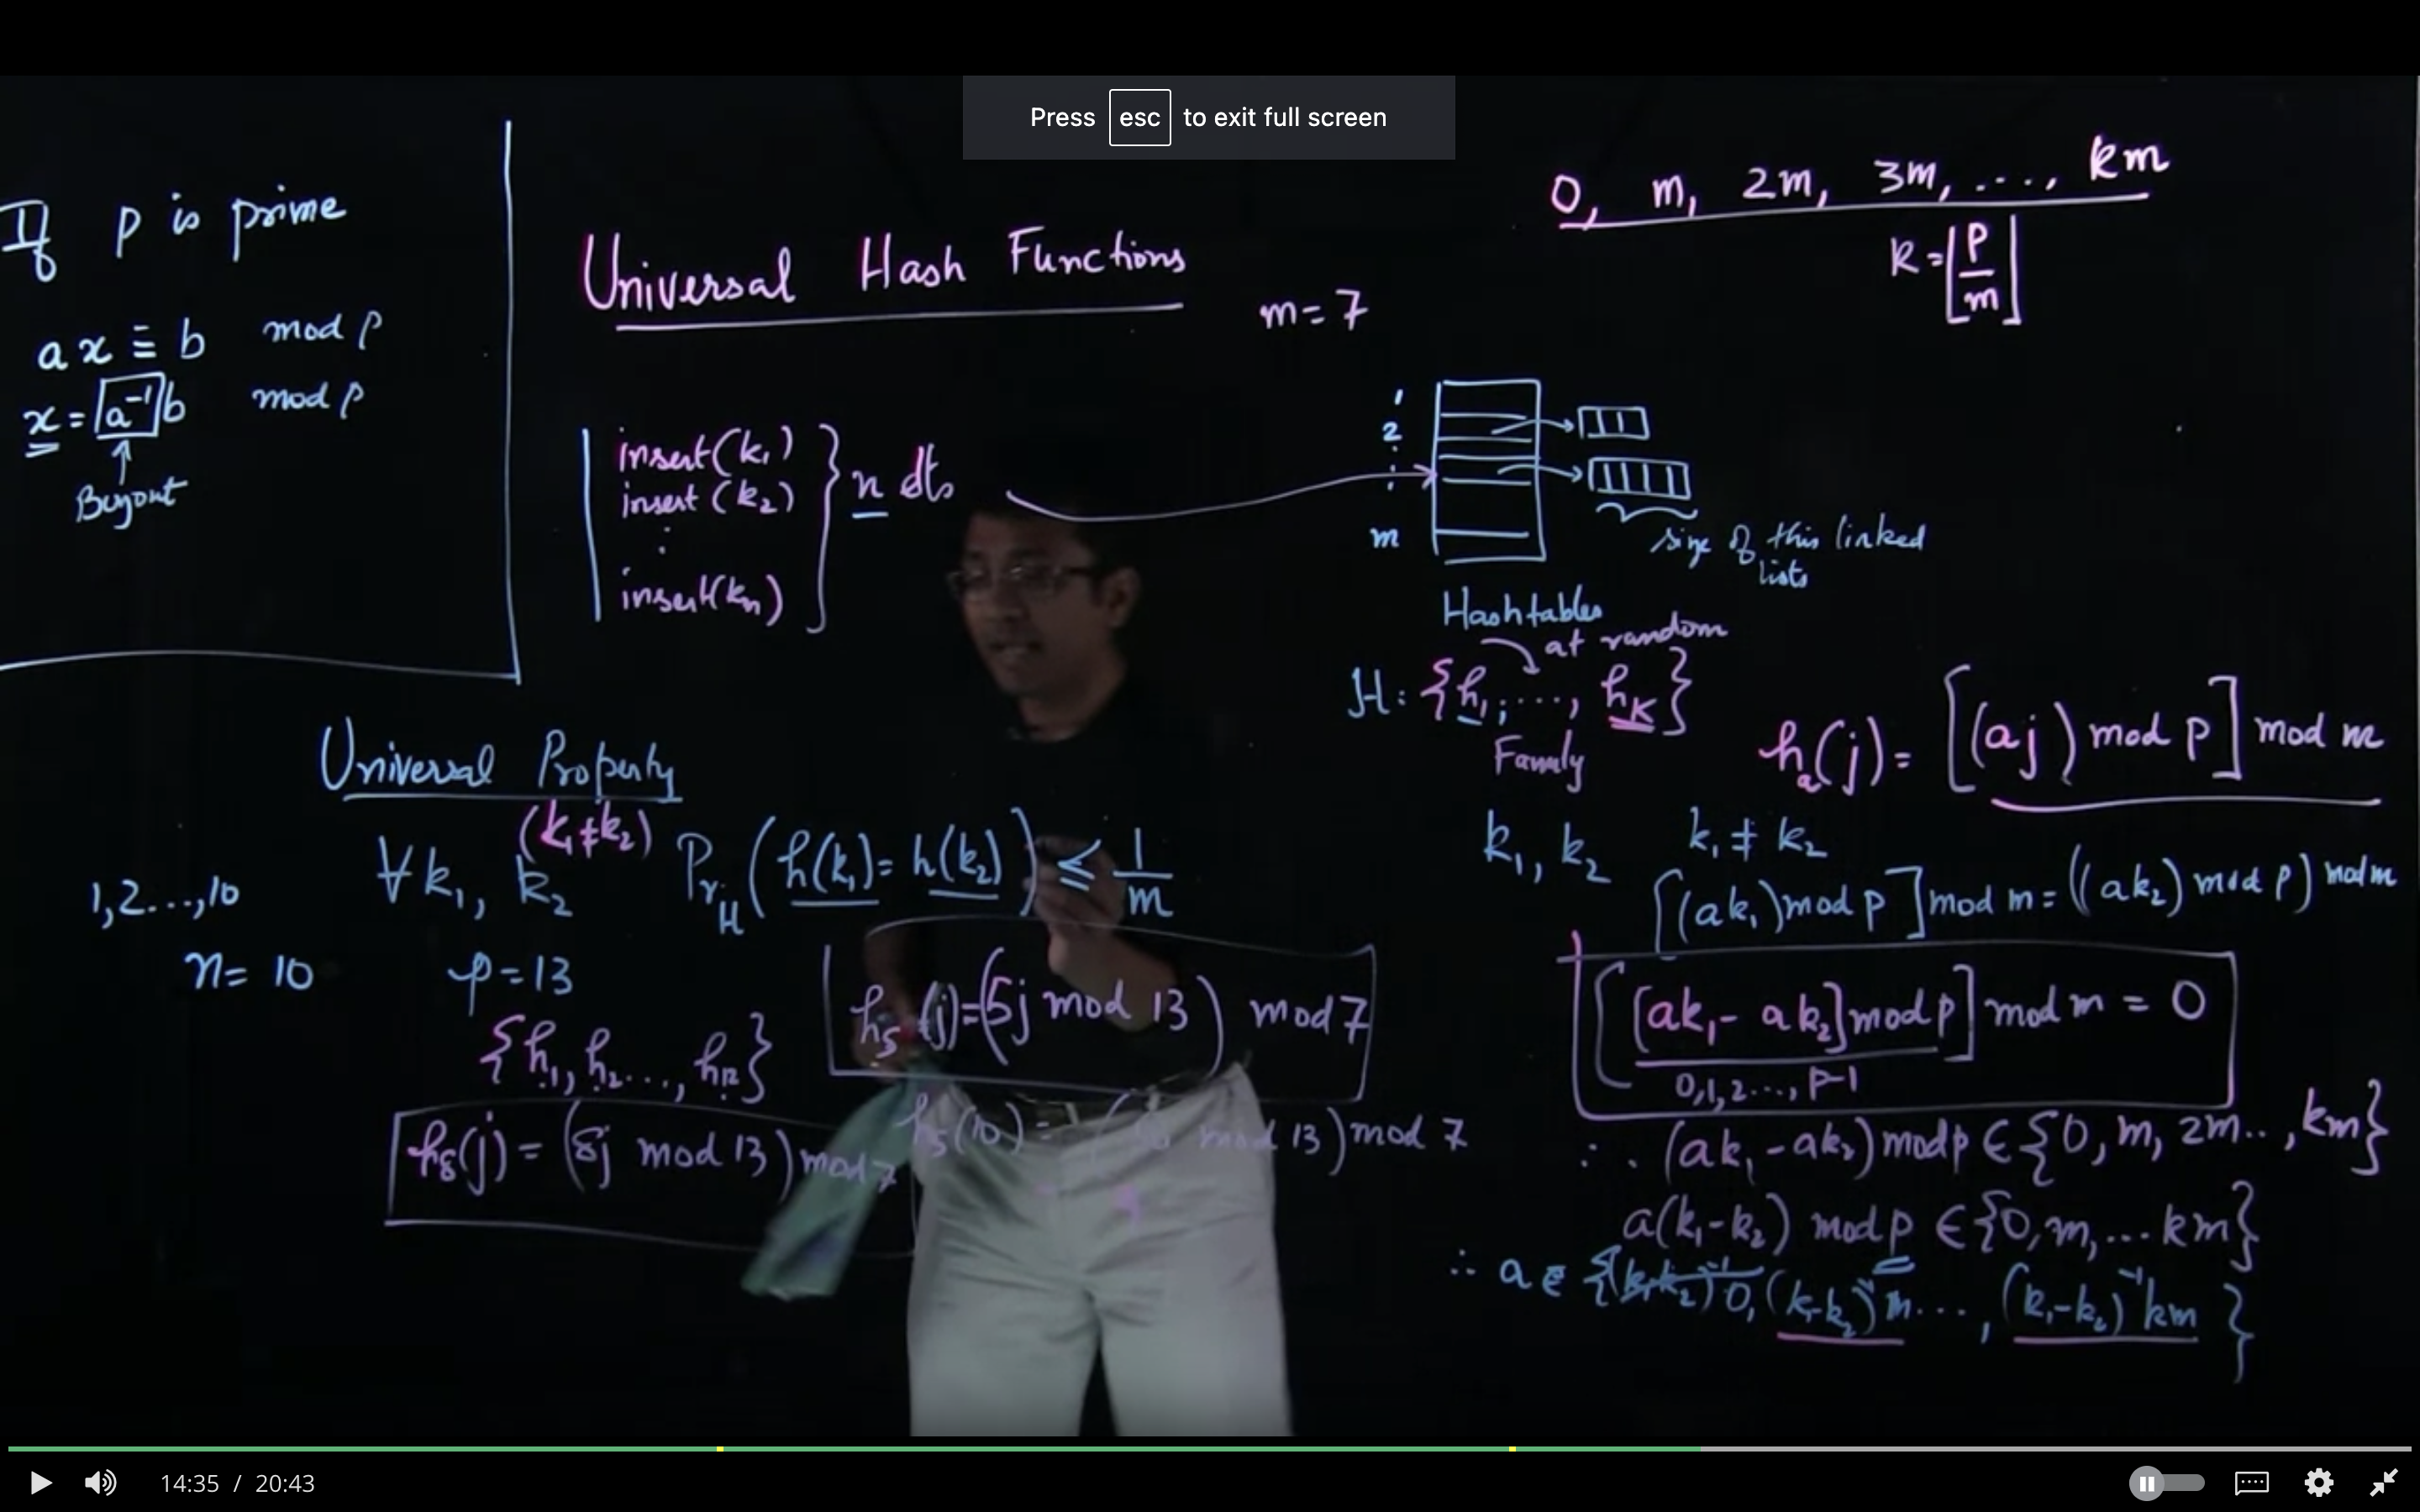 Press esc to exit full screen
If p is prime
ax ≡ b mod p
x = a⁻¹ b mod p
Bezout
Universal Hash Functions
m = 7
0, m, 2m, 3m, ..., km
k = ⌊p/m⌋
insert(k₁)
insert(k₂)
⋮
insert(kn)
} n dts
1
2
⋮
m
size of this linked
lists
Hashtables
at random
H: {h₁, ..., hK}
Family
hₐ(j) = [(aj) mod p] mod m
Universal Property
(k₁ ≠ k₂)
∀ k₁, k₂ Pr_H (h(k₁) = h(k₂)) ≤ 1/m
1, 2..., 10
n = 10 p = 13
{h₁, h₂..., h₁₂}
h₅(j) = (5j mod 13) mod 7
h₈(j) = (8j mod 13) mod 7
h₅(10) = (50 mod 13) mod 7
k₁, k₂ k₁ ≠ k₂
[(ak₁) mod p] mod m = ((ak₂) mod p) mod m
[[ak₁ - ak₂] mod p] mod m = 0
0, 1, 2..., p-1
∴ (ak₁ - ak₂) mod p ∈ {0, m, 2m.., km}
a(k₁ - k₂) mod p ∈ {0, m, ... km}
∴ a ∈ {(k₁-k₂)⁻¹ 0, (k₁-k₂)⁻¹ m ..., (k₁-k₂)⁻¹ km}
14:35 / 20:43